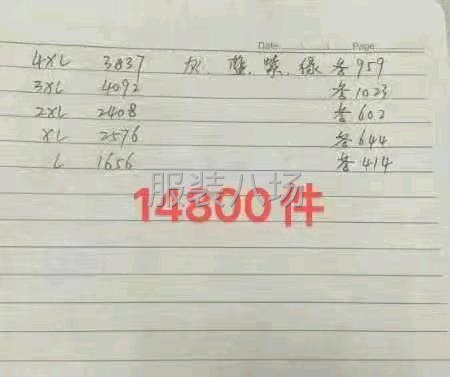 Date Page
4XL 3837 灰、蓝、紫、绿 各959
3XL 4092 各1023
2XL 2408 各602
XL 2576 各644
L 1656 各414
服装八场
14800件